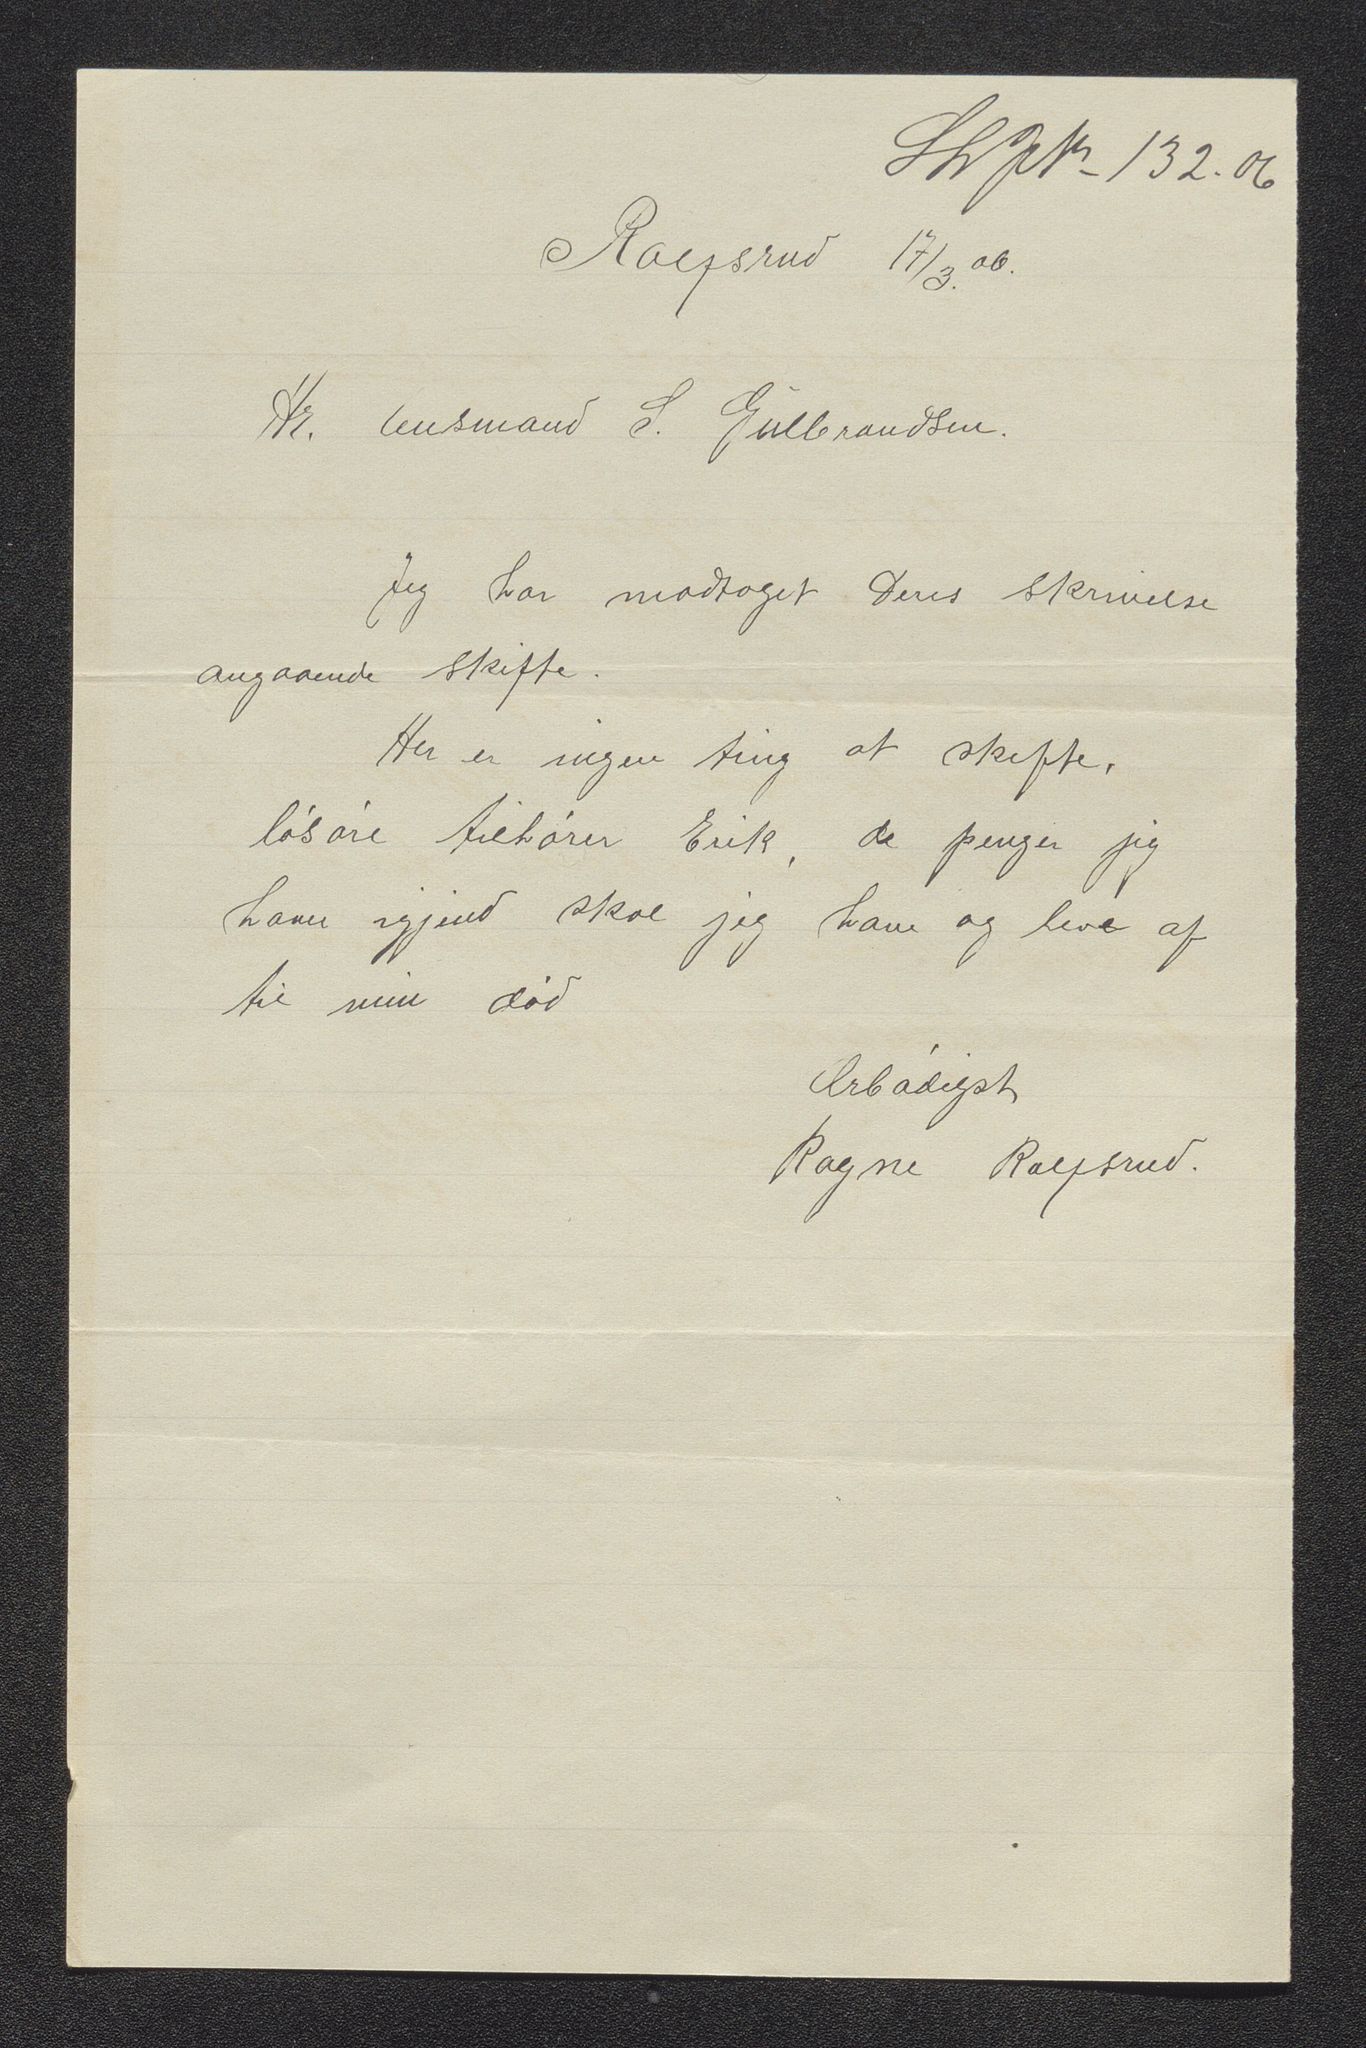 132.06
Rolfsrud 17/3. 06.
Hr. lensmand S. Gulbrandsen.
Jeg har modtaget Deres skrivelse
angaaende skifte.
Her er ingen ting at skifte,
løsøre tilhører Erik, de penger jeg
haver igjend skal jeg have og leve af
til min død
Ærbødigst
Ragne Rolfsrud.